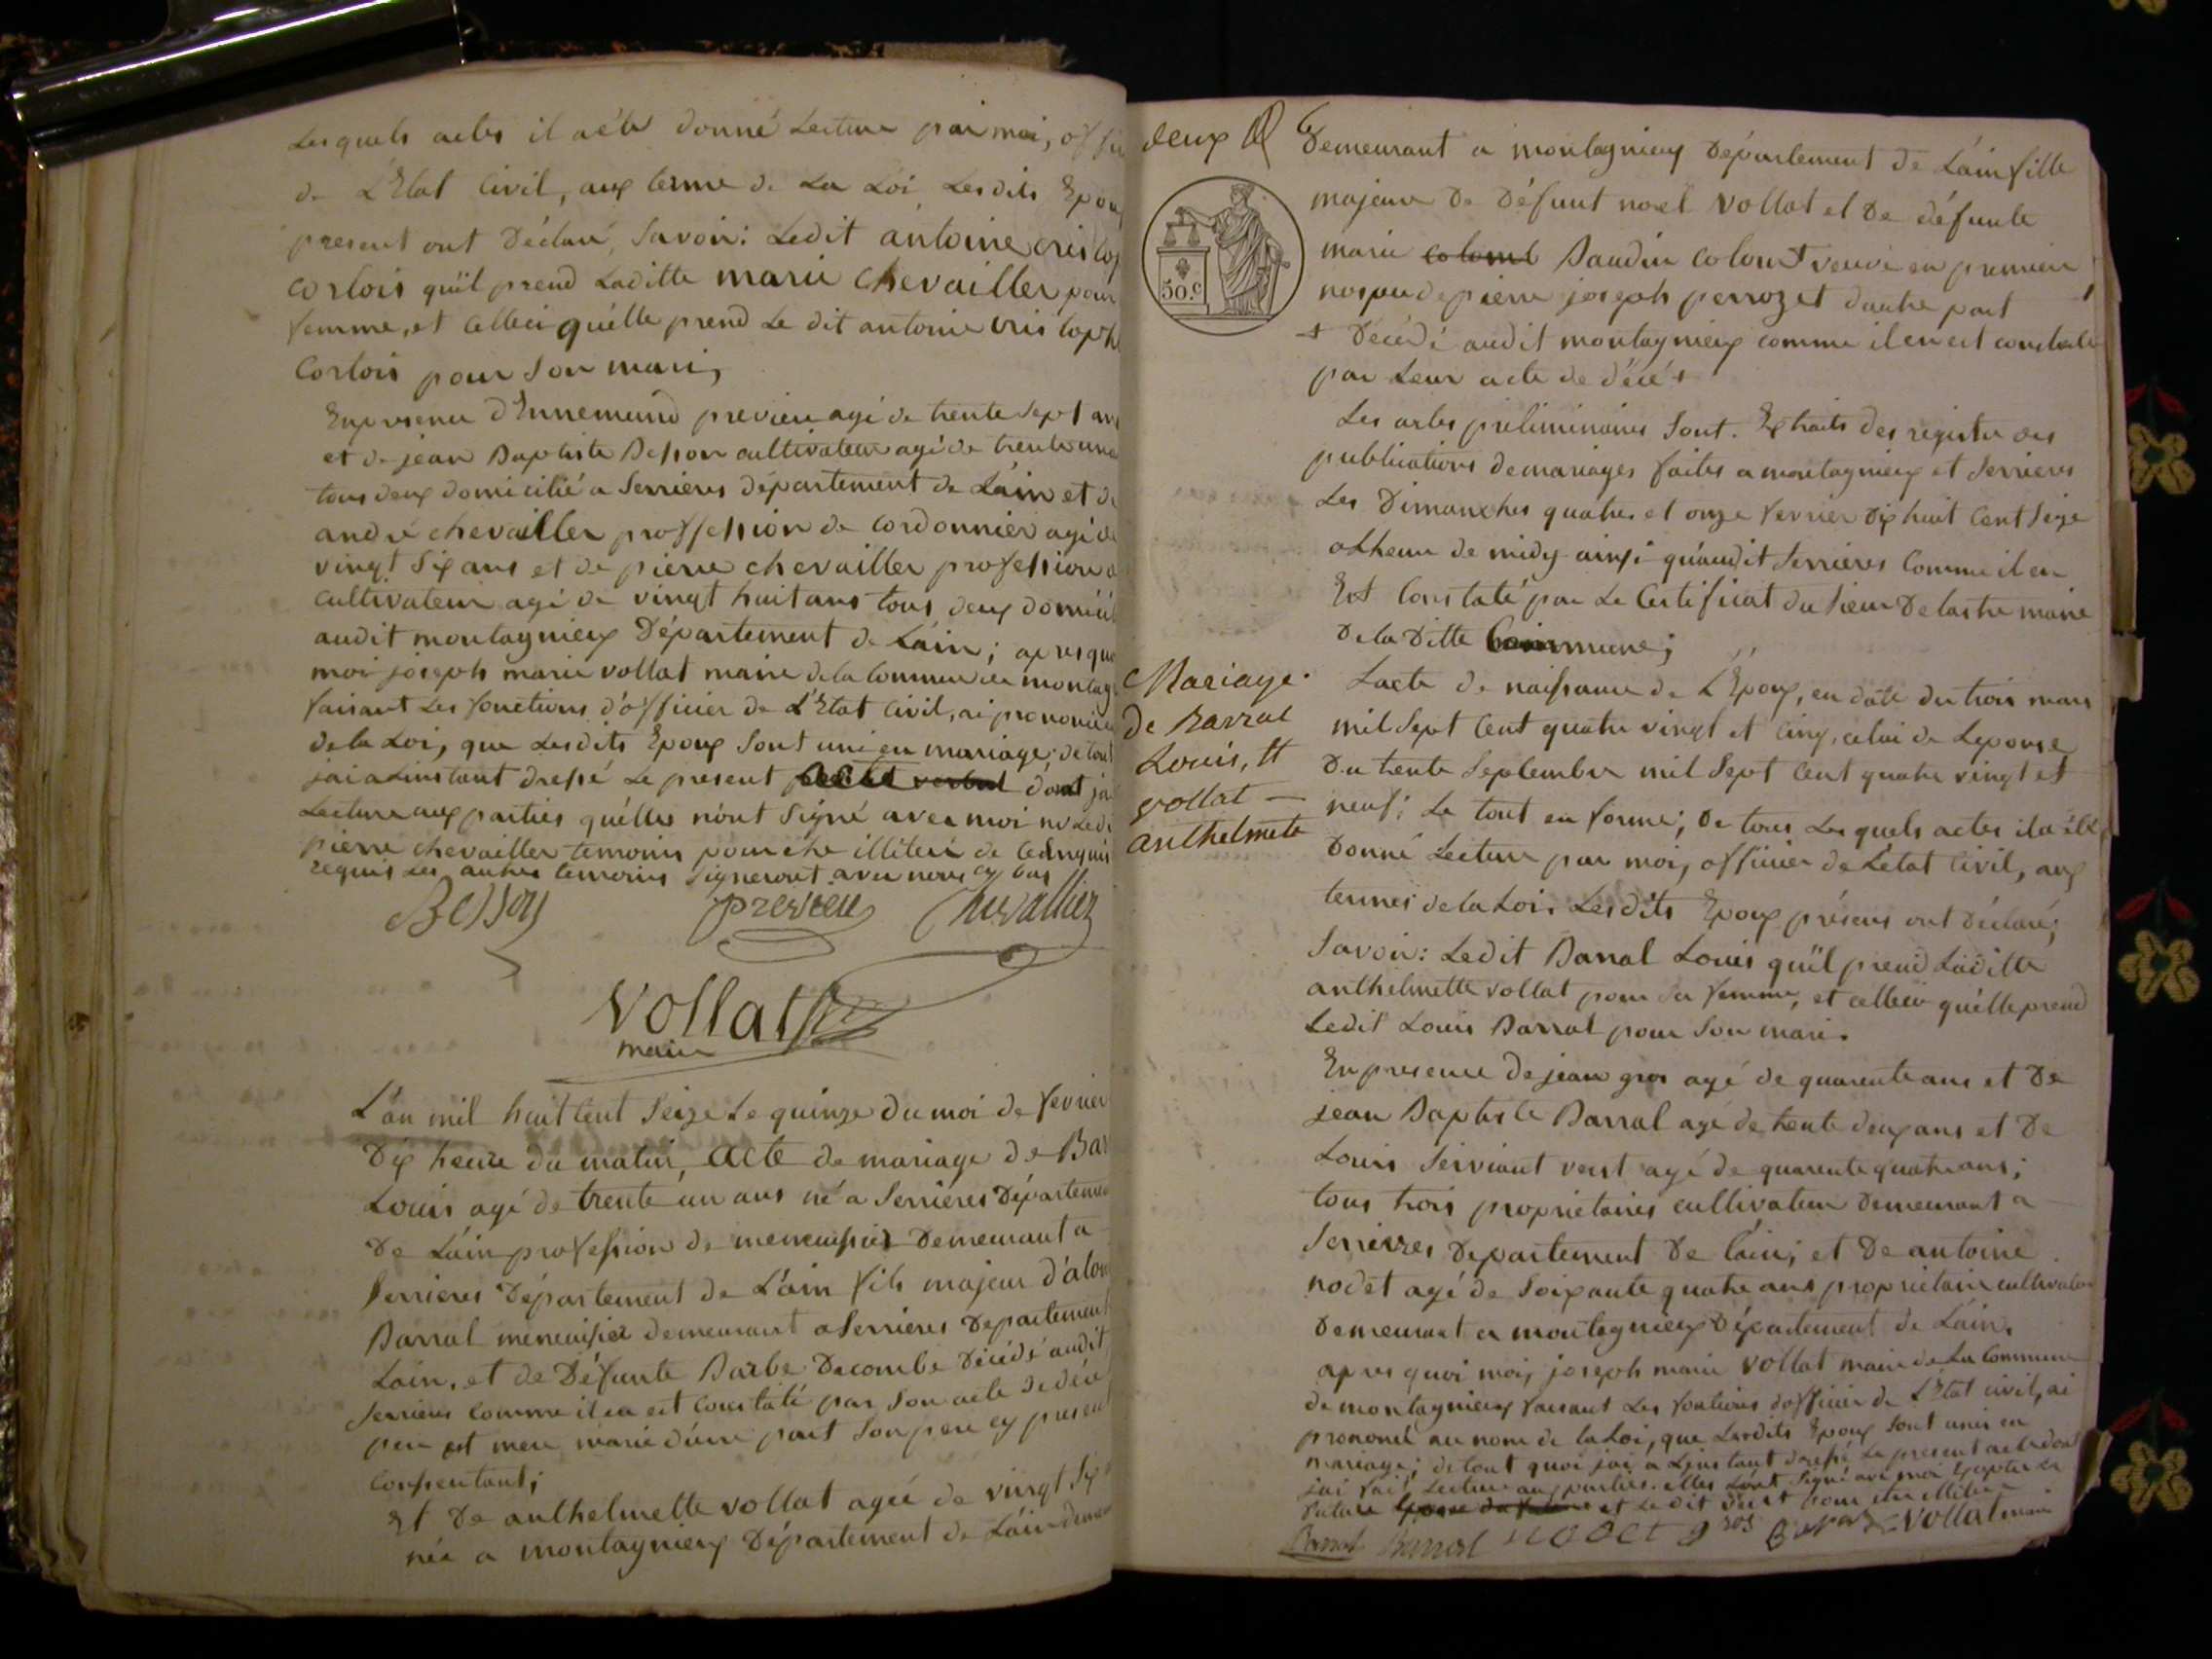 Lesquels actes il a été donné Lecture par moi, offi
de L'Etat Civil, aux terme de La Loi Lesdits Epou
present ont Déclaré, Savoir: Ledit antoine cristop
corlois qu'il prend Laditte marie chevailler pour
femme, et celleci qu'elle prend Le dit antoine cristoph
Corlois pour Son mari,
En presence d'Ennemund previeu agé de trente Sept an
et de jean Baptiste Besson cultivateur agé de trente un
tous deux domicilié a Serrieres département de L'ain et de
andré chevailler proffession de cordonnier agé de
vingt Six ans et de pierre chevailler profession
cultivateur agé de vingt huit ans tous deux domicil
audit montagnieux Département de L'ain; apres quoi
moi joseph marie vollat maire de la commune de montag
faisant Les fonctions d'officier de L'Etat Civil, ai prononcé
de la Loi, que Lesdits Epoux Sont uni en mariage; de tout
j'ai a L'instant dressé Le present acte verbal dont j'ai
Lecture aux parties qu'elles n'ont Signé avec moi ni Ledi
pierre chevailler temoins pour être illiteré de ce enquis
requis Les autres temoins Signeront avec nous cy bas
Besson previeu Chevallier
Vollat
maire
L'an mil huit Cent Seize Le quinze du moi de fevrier
Dix heure du matin, acte de mariage de Bar
Louis agé de trente un ans né a Serrieres Départemen
De L'ain profession de menuisier Demeurant a
Serrieres Département de L'ain fils majeur d'
Barral menuisier demeurant a Serrieres Departement
L'ain, et de Défunte Barbe Decombe Décédé audit
Serrieres Comme il en est Constaté par Son acte de décé
pere et mere marié d'une part Son pere cy present
Consentant;
Et De anthelmette vollat agée de vingt Six
née a montagnieux Département de L'ain demeu
deux
6
Demeurant a montagnieux Département de L'ain fille
majeure De Défunt noel Vollat et De défunte
marie colomb Baudin colomb veuve en premiere
nos de pierre joseph perrozet d'autre part
50.c
+ Décédé audit montagnieux comme il en est constaté
par Leur acte de décé +
Les actes préliminaires Sont. Extraits des registre des
publications de mariages faites a montagnieux et Serrieres
Les Dimanches quatre et onze fevrier Dix huit Cent Seize
a L'heure de midy ainsi qu'audit Serrieres Comme il en
Est Constaté par Le Certificat du Sieur Delastre maire
De la Ditte Commune;
Mariage
de Barral
Louis, et
vollat —
anthelmete
L'acte de naissance de L'Epoux, en date du trois mars
mil Sept Cent quatre vingt et Cinq, celui de L'epouse
Du trente Septembre mil Sept Cent quatre vingt et
neuf; Le tout en forme; De tous Lesquels actes il a été
Donné Lecture par moi, officier de L'etat Civil, aux
termes de la Loi. Lesdits Epoux présens ont Déclaré;
Savoir: Ledit Barral Louis qu'il prend Laditte
anthelmette vollat pour Sa femme, et celleci qu'elle prend
Ledit Louis Barral pour Son mari.
En presence de jean gros agé de quarente ans et De
jean Baptiste Barral agé de trente deux ans et De
Louis Serviant agé de quarente quatre ans;
tous trois proprietaires cultivateur Demeurant a
Serrieres Departement De L'ain; et De antoine
nodet agé de Soixante quatre ans proprietaire cultivateur
Demeurant a montagnieux Département de L'ain.
apres quoi moi, joseph marie Vollat maire de La Commune
de montagnieux faisant Les fontions d'officier de L'Etat civil, ai
prononcé au nom de la Loi, que Lesdits Epoux Sont unis en
mariage; de tout quoi j'ai a L'instant dressé Le present acte dont
j'ai fait Lecture aux parties. elles L'ont Signé avec moi Excepté La
future et Le dit pour être illiteré
Barral Barral nodet gros Vollat maire